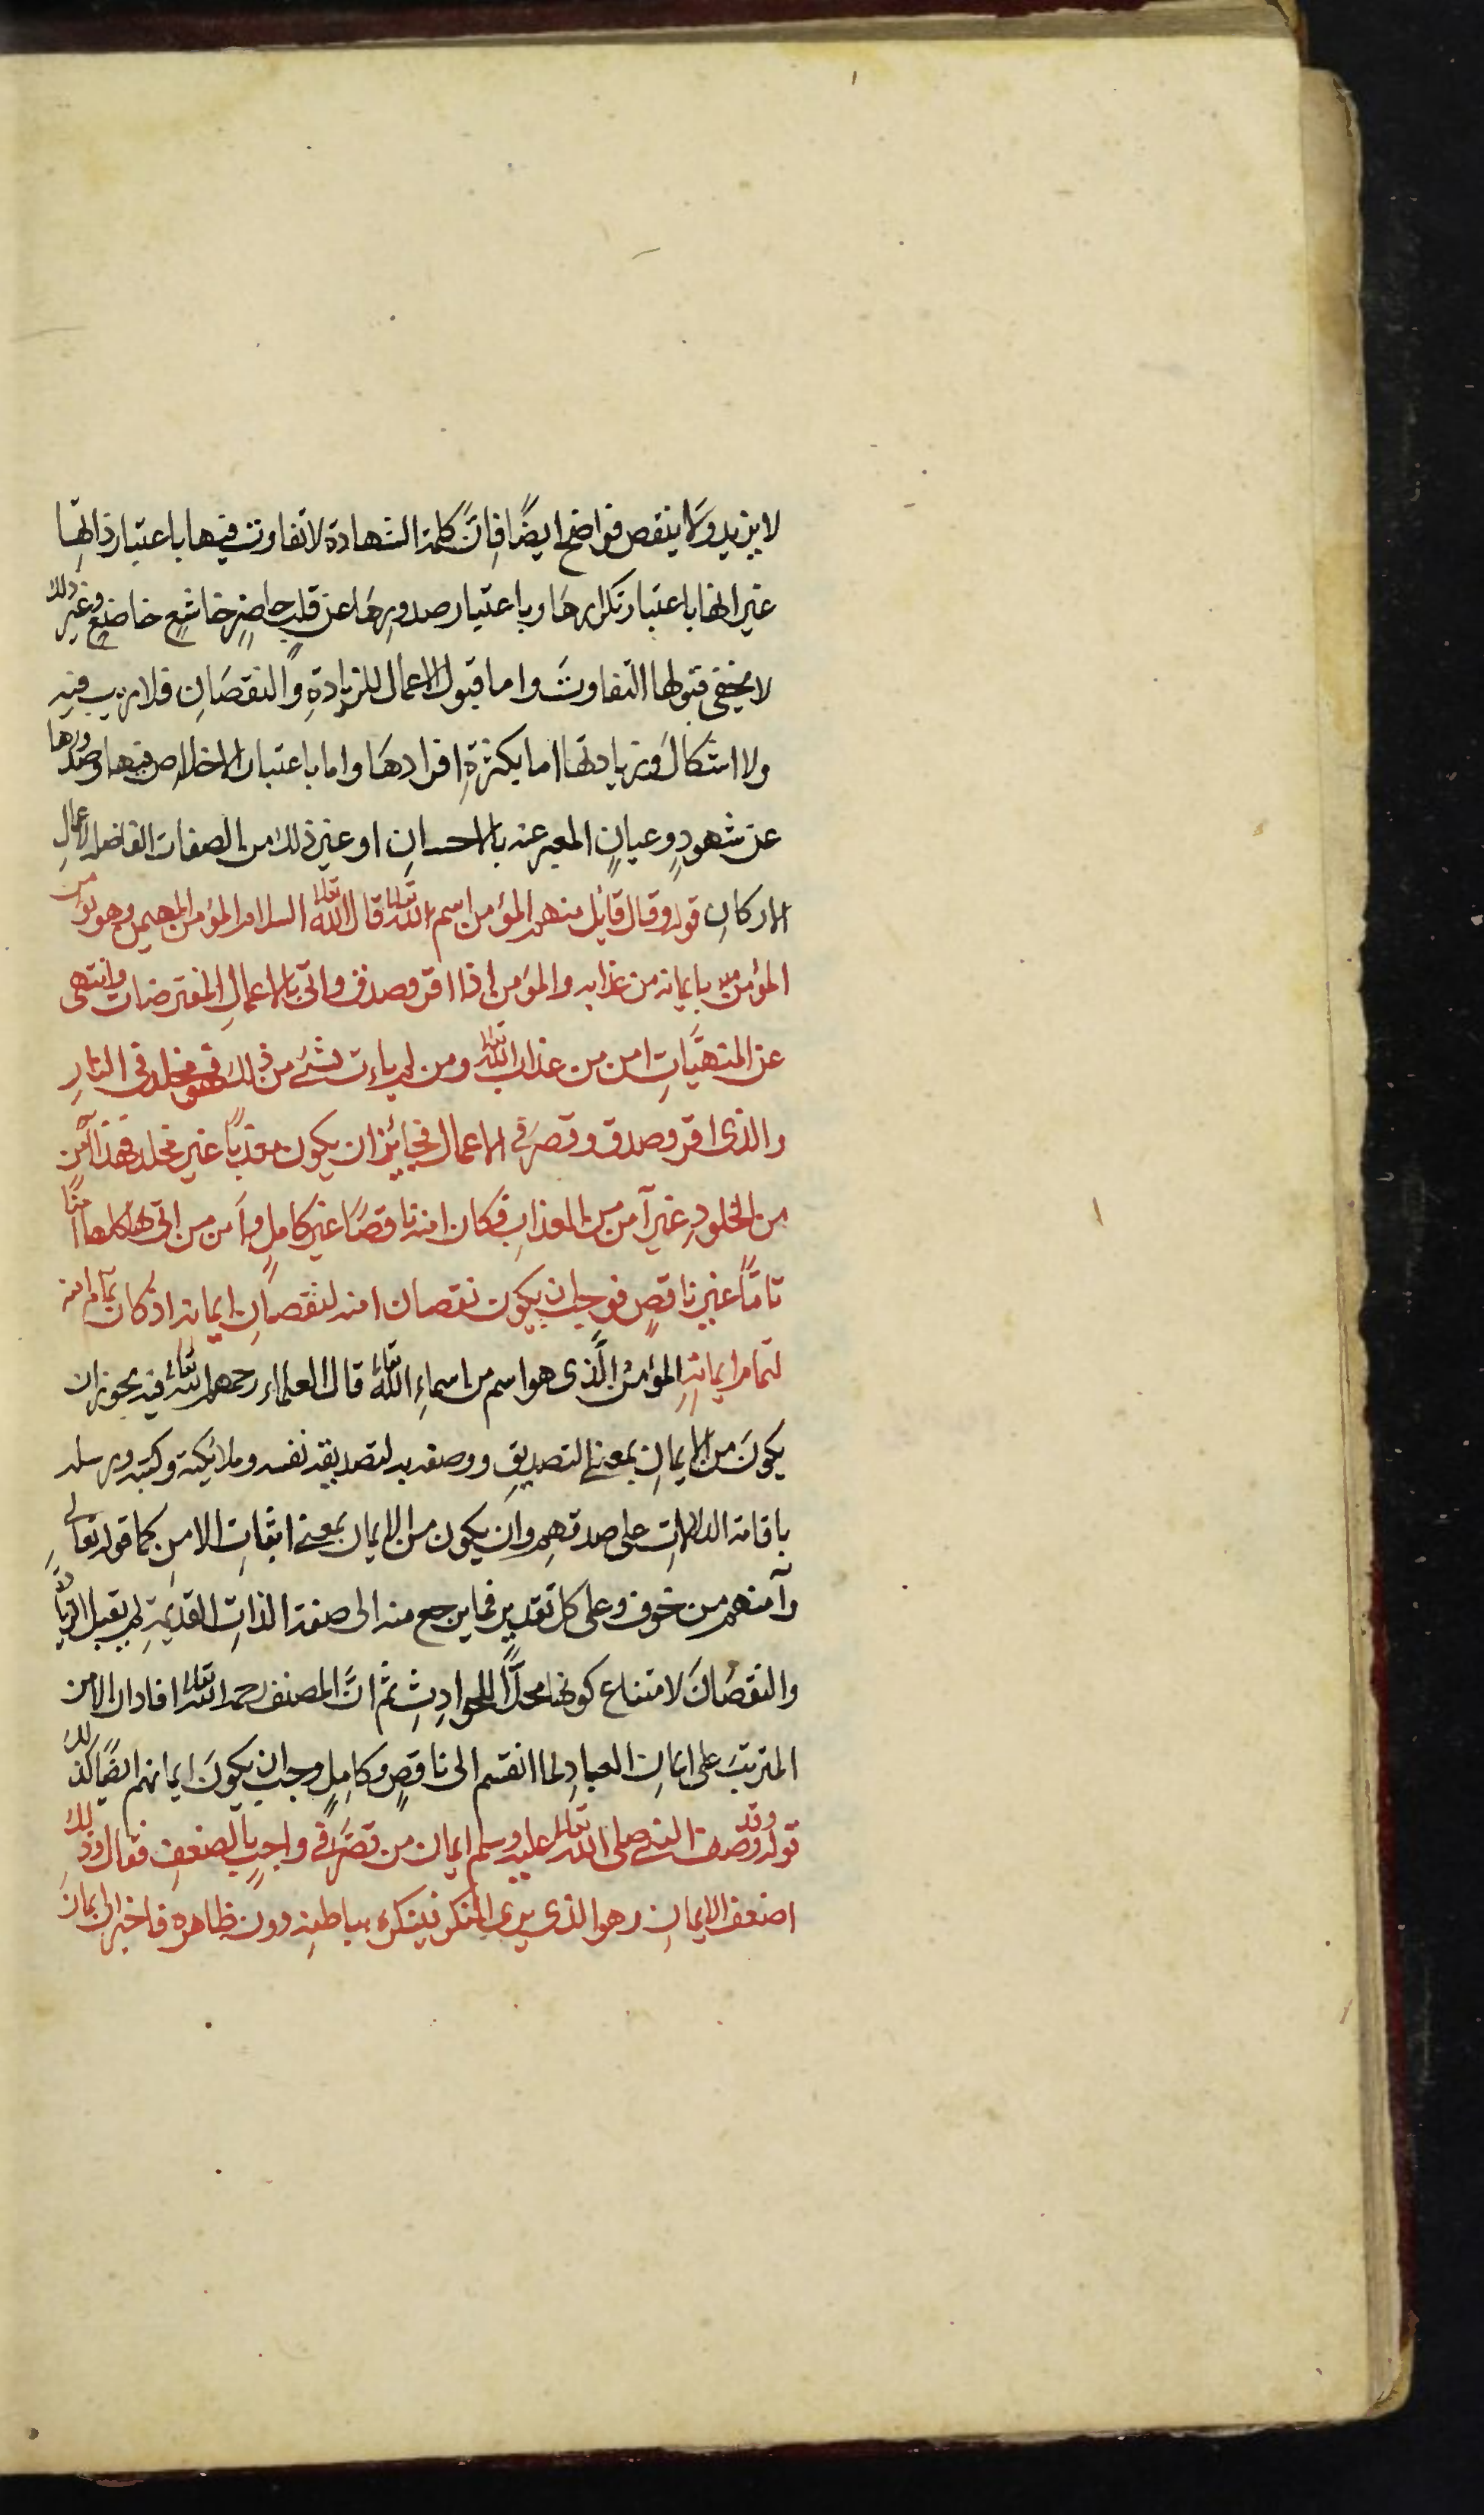 لا يزيد ولا ينقص فواضح ايضًا فانّ كلمة الشهادة لا تفاوت فيها باعتبار ذاتها
غير انها باعتبار تكرارها وباعتبار صدورها عن قلبٍ حاضرٍ خاشعٍ خاضعٍ وغير ذلك
لا يخفى قبولها التفاوتَ واما قبول الاعمال للزيادةِ والنقصَانِ فلا ريب فيه
ولا اشكالَ وزيادتها اما بكثرةِ افرادهَا واما باعتبار الاخلاص فيها وصدورها
عن شهودٍ وعيانٍ المعبر عنه بالاحسانِ او غير ذلك من الصفات الفاضلة لاعمالِ
الاركانِ قوله وقال قائل منهم المؤمن اسم الله تعالى قال الله تعالى السلام المؤمن المهيمن وهو يؤمن
المؤمن بايمانه من عذابه والمؤمن اذا اقر وصدق واتى بالاعمالِ المفترضات وانتهى
عن المنهيَّاتِ امن من عذاب الله تعالى ومن لم يات بشئ من ذلك فهو مخلد فى النارِ
والذى اقر وصدق وقصر فى الاعمال فجائز ان يكون معذبًا غير مخلد فهذا آمن
من الخلودِ غير آمن من العذابِ فكان امنه ناقصًا غير كاملٍ وآمن من اتى بها كلها امنًا
تامًّا غير ناقصٍ فوجب ان يكون نقصان امنه لنقصانِ ايمانه اذ كان تمام امنه
لتمام ايمانهِ المؤمنُ الَّذى هو اسم من اسماءِ الله تعالى قال العلماء رحمهم الله تعالى فيه يجوز ان
يكونَ من الايمانِ بمعنى التصديقِ ووصفه به لتصديقه نفسه وملائكته وكتبه ورسله
باقامة الدلالاتِ على صدقهم وان يكون من الايمان بمعنى اثباتِ الامن كما قوله تعالى
وآمنهم من خوف وعلى كل تقدير فما يرجع منه الى صفة الذاتِ القديمةِ لم يقبل الزيادة
والنقصَانَ لامتناع كونها محلًّا للحوادِثِ ثم انَّ المصنف رحمه الله تعالى افاد ان الامن
المترتبَ على ايمانِ العبادِ لما انقسم الى ناقصٍ وكاملٍ وجب ان يكونَ ايمانهم ايضًا كذلك
قوله وقد وصف النبى صلى الله تعالى عليه وسلم ايمان من قصّر فى واجبٍ بالضعفِ فقال وذلك
اضعف الايمانِ وهو الذى يرى المنكر فينكره بباطنهِ دون ظاهره فاخبر ان ايمانَ